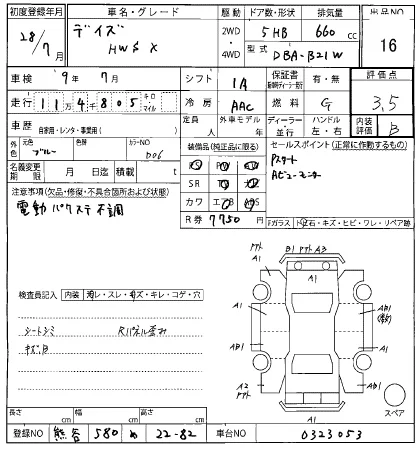 初度登録年月 車名・グレード 駆動 ドア数・形状 排気量 出品NO
28/7月 デイズ 2WD 5HB 660cc 16
HWS X 4WD 型式 DBA-B21W
車検 9年7月 シフト IA 保証書 有・無 評価点
走行 11万4千805 キロ マイル 冷房 AAC 燃料 G 3.5
車歴 自家用・レンタ・事業用( ) ドア 外車モデル 年 ディーラー 並行 ハンドル 左・右 内装評価 B
外色 元色 ブルー 色替 カラーNO 装備品(純正品に限る) セールスポイント(正常に作動するもの)
D06 Pスタート
名義変更期限 月 日迄 積載 t SR Aビューモニター
注意事項(欠品・修復・不具合箇所および状態) カワ エアB ABS
電動パワステ不調 R券 7750円 Fガラス 飛石・キズ・ヒビ・ワレ・リペア跡
検査員記入 内装 汚レ・スレ・キズ・キレ・コゲ・穴
シートシミ Rパネル歪み
キズ有
トアト A1 B1 トアト A3
A1
A1 AB1
(数)
A1 AB1
A2 トアト
A1
A1
スペア
長さ cm 幅 cm 高さ cm
登録NO 熊谷 580 め 22-82 車台NO 0323053